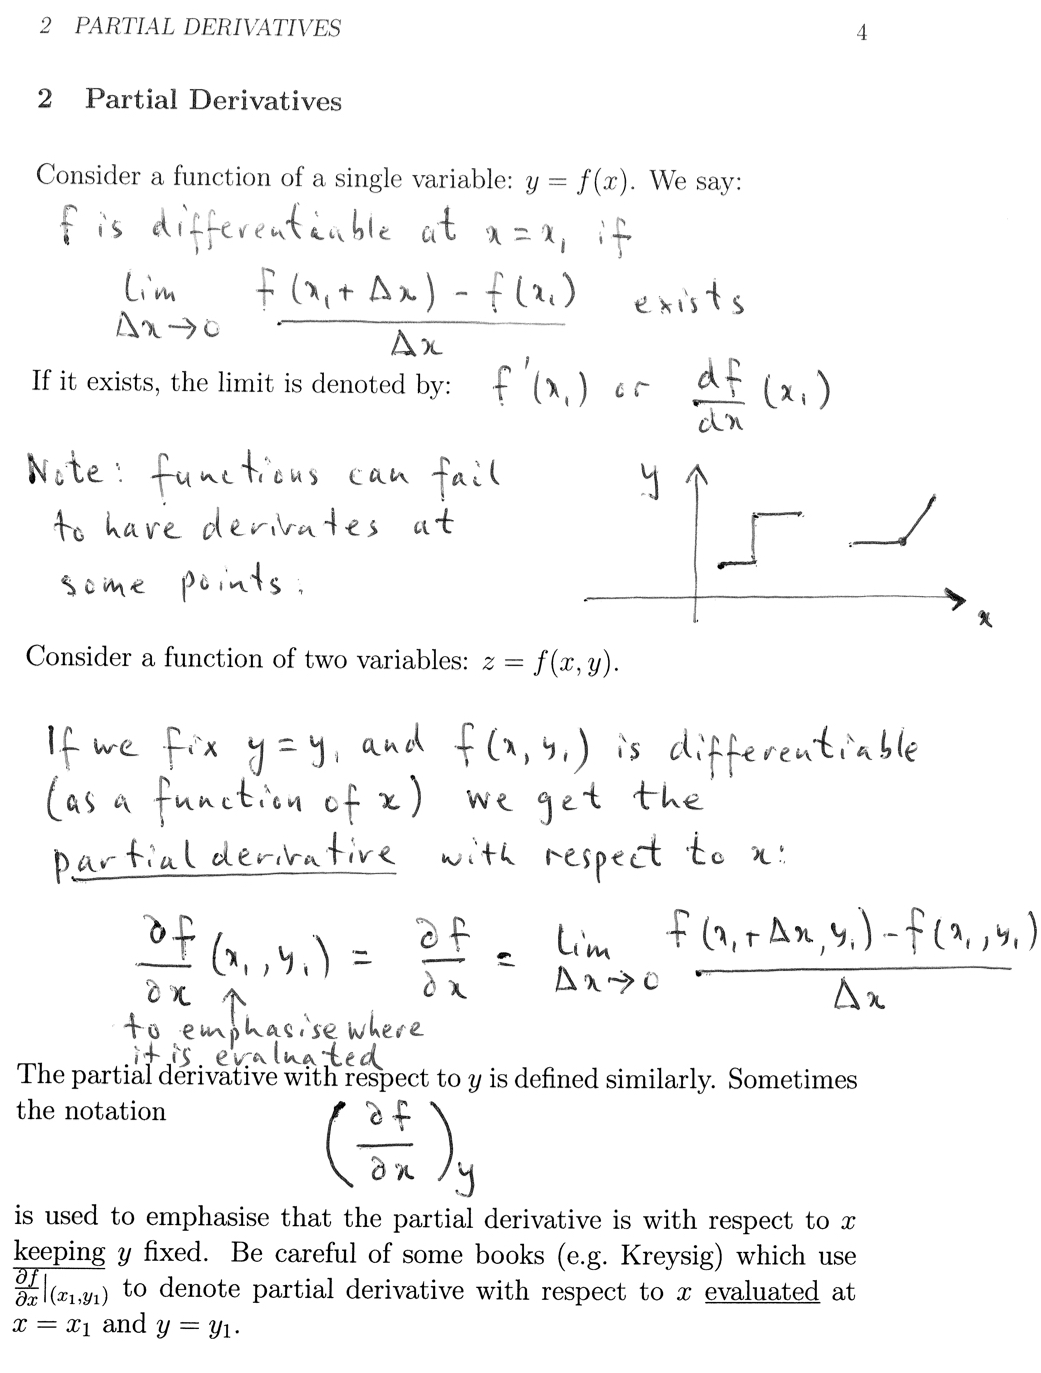 2 PARTIAL DERIVATIVES 4
2 Partial Derivatives
Consider a function of a single variable: y = f(x). We say:
f is differentiable at x = x₁ if
lim f(x₁ + Δx) - f(x₁) exists
Δx→0 Δx
If it exists, the limit is denoted by: f'(x₁) or df/dx (x₁)
Note: functions can fail
to have derivates at
some points.
y
x
Consider a function of two variables: z = f(x, y).
If we fix y = y₁ and f(x, y₁) is differentiable
(as a function of x) we get the
partial derivative with respect to x:
∂f/∂x (x₁, y₁) = ∂f/∂x = lim Δx→0 (f(x₁ + Δx, y₁) - f(x₁, y₁))/Δx
↑
to emphasise where
it is evaluated
The partial derivative with respect to y is defined similarly. Sometimes
the notation
(∂f/∂x)y
is used to emphasise that the partial derivative is with respect to x
keeping y fixed. Be careful of some books (e.g. Kreysig) which use
∂f/∂x|(x₁,y₁) to denote partial derivative with respect to x evaluated at
x = x₁ and y = y₁.